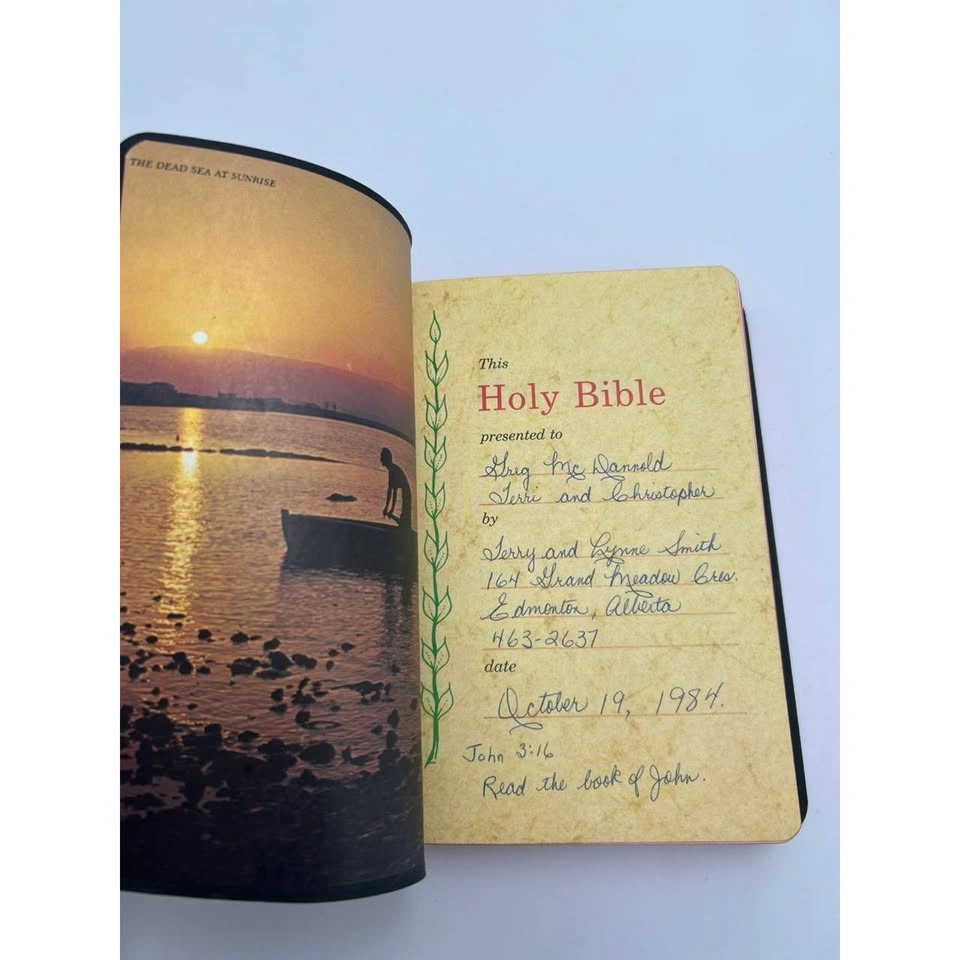 THE DEAD SEA AT SUNRISE
This
Holy Bible
presented to
Greg McDannold
Terri and Christopher
by
Terry and Lynne Smith
164 Grand Meadow Cres.
Edmonton, Alberta
463-2637
date
October 19, 1984.
John 3:16
Read the book of John.